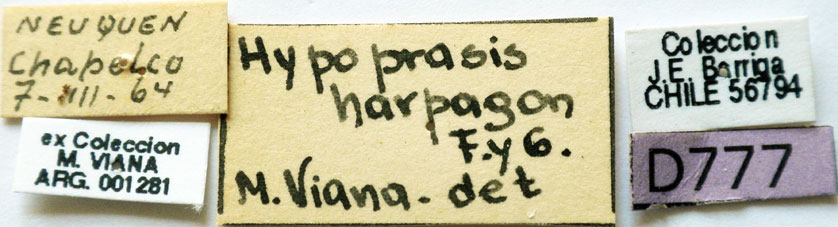 NEUQUEN
Chapelco
7-III-64
ex Coleccion
M. VIANA
ARG. 001281
Hypoprasis
harpagon
F. y G.
M. Viana - det
Coleccion
J.E. Barriga
CHILE 56794
D777